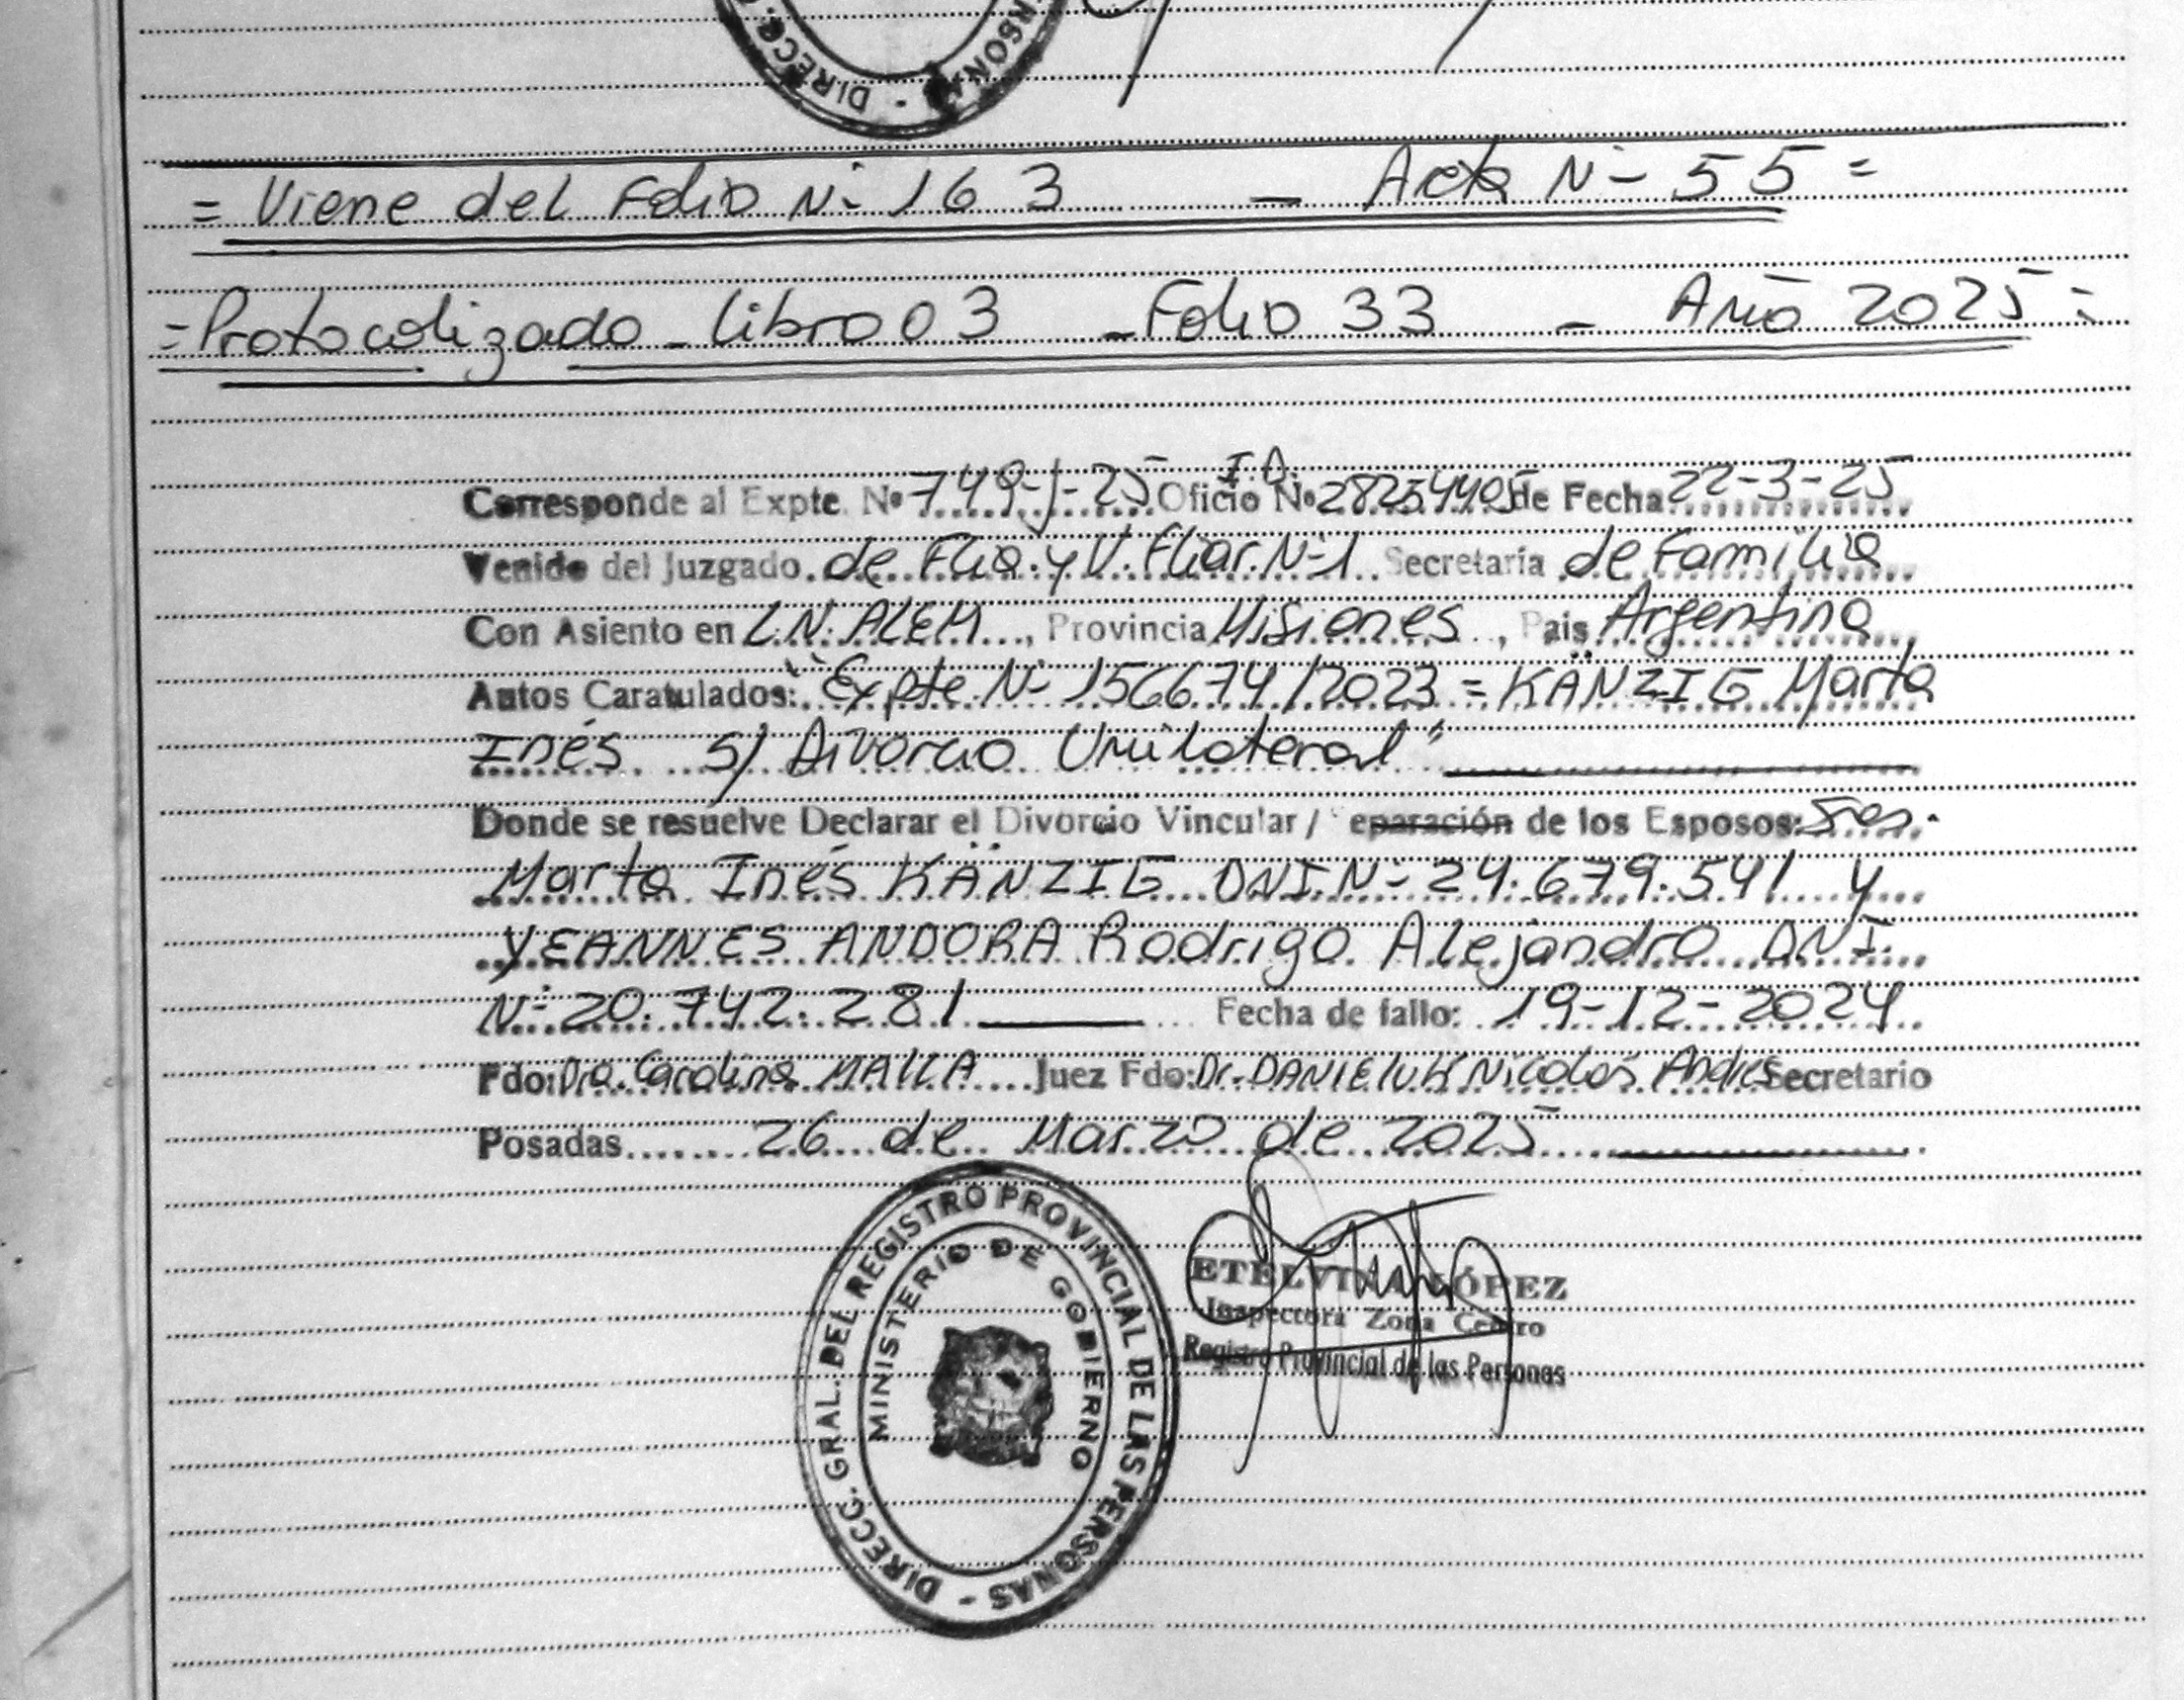 DIRECC. PERSONAS
= Viene del Folio N- 163 - Acta N- 55 =
= Protocolizado - Libro 03 - Folio 33 - Año 2025 =
I.D.
Corresponde al Expte. Nº 749-J-25 Oficio Nº 28254405 de Fecha 22-3-25
Venido del Juzgado de Flia. y V. Fliar. N-1 Secretaría de Familia
Con Asiento en L.N. ALEM, Provincia Misiones, Pais Argentina
Autos Caratulados: "Expte. N- 156674/2023 = KÄNZIG Marta
Inés s/ Divorcio Unilateral"
Donde se resuelve Declarar el Divorcio Vincular / eparación de los Esposos: Sres.
Marta Inés KÄNZIG DNI. N- 24.679.541 y
YEANNES ANDORA Rodrigo Alejandro DNI.
N- 20.742.281 Fecha de fallo: 19-12-2024
Fdo: Dra. Carolina Juez Fdo: Dr. DANIELUK Nicolás Andres Secretario
Posadas 26 de Marzo de 2025
DIRECC. GRAL. DEL REGISTRO PROVINCIAL DE LAS PERSONAS -
MINISTERIO DE GOBIERNO
ETELVINA LÓPEZ
Inspectora Zona Centro
Registro Provincial de las Personas